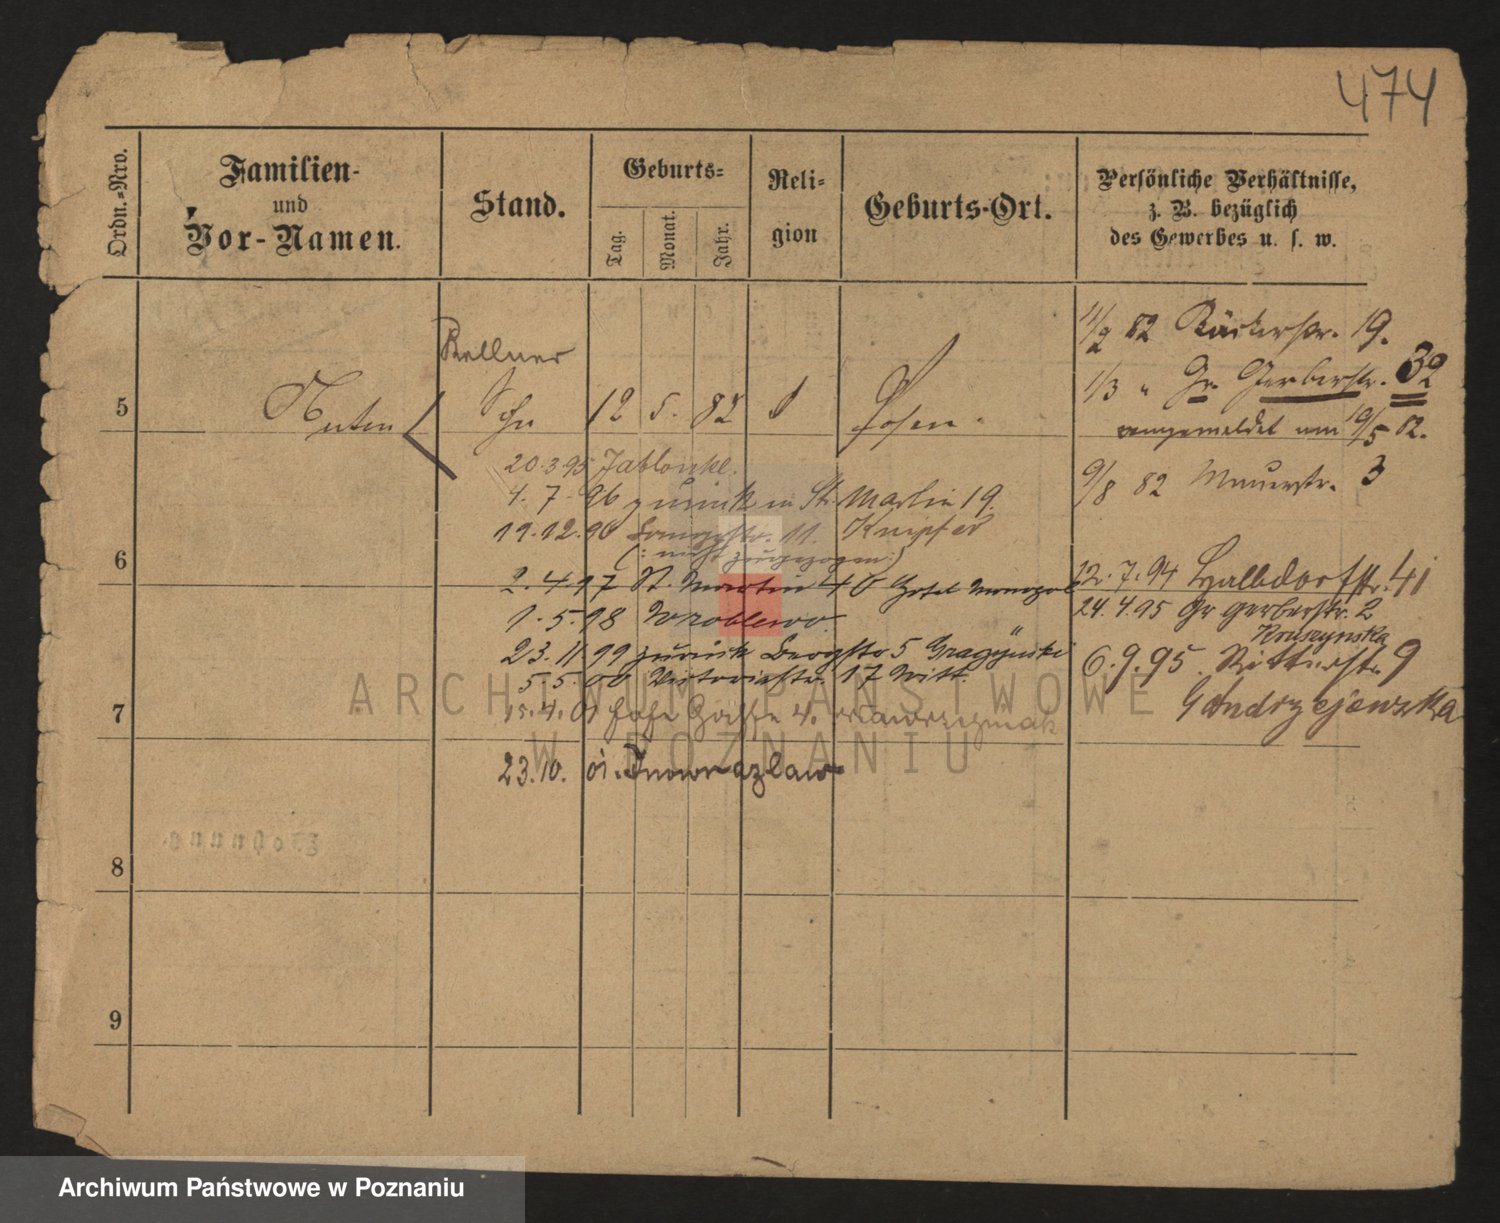 474
Ordn.-Nro.
Familien-
und
Vor-Namen.
Stand.
Geburts-
Tag.
Monat.
Jahr.
Reli-
gion
Geburts-Ort.
Persönliche Verhältnisse,
z. B. bezüglich
des Gewerbes u. s. w.
4/2 82 Bäckerstr. 19.
1/3 " Gr. Gerberstr. 32
angemeldet am 10/5 82.
9/8 82 Mauerstr. 3
Kellner
5 Anton Sohn 12 5. 82 Posen.
20.3.95
4. 7. 96 zurück in St. Martin 19.
19.12.96 11. Knipfer
(: nicht zugezogen :)
6
2. 4. 97 St. Martin 40 Hotel Monopol
1. 5. 98 Wroblewo.
23. 11 99 zurück Bergstr 5
5. 5. 00 Victoriastr. 17 Witt.
7
15. 4. 01 Hohe Gasse 4. Wawrzyniak
23. 10. 01. Inowrazlaw
12. 7. 94 Halbdorfstr. 41
24. 4. 95 Gr Gerberstr. 2
Kruszynska
6. 9. 95. Ritterstr. 9
Andrzejewska
8
9
ARCHIWUM PAŃSTWOWE
W POZNANIU
Archiwum Państwowe w Poznaniu